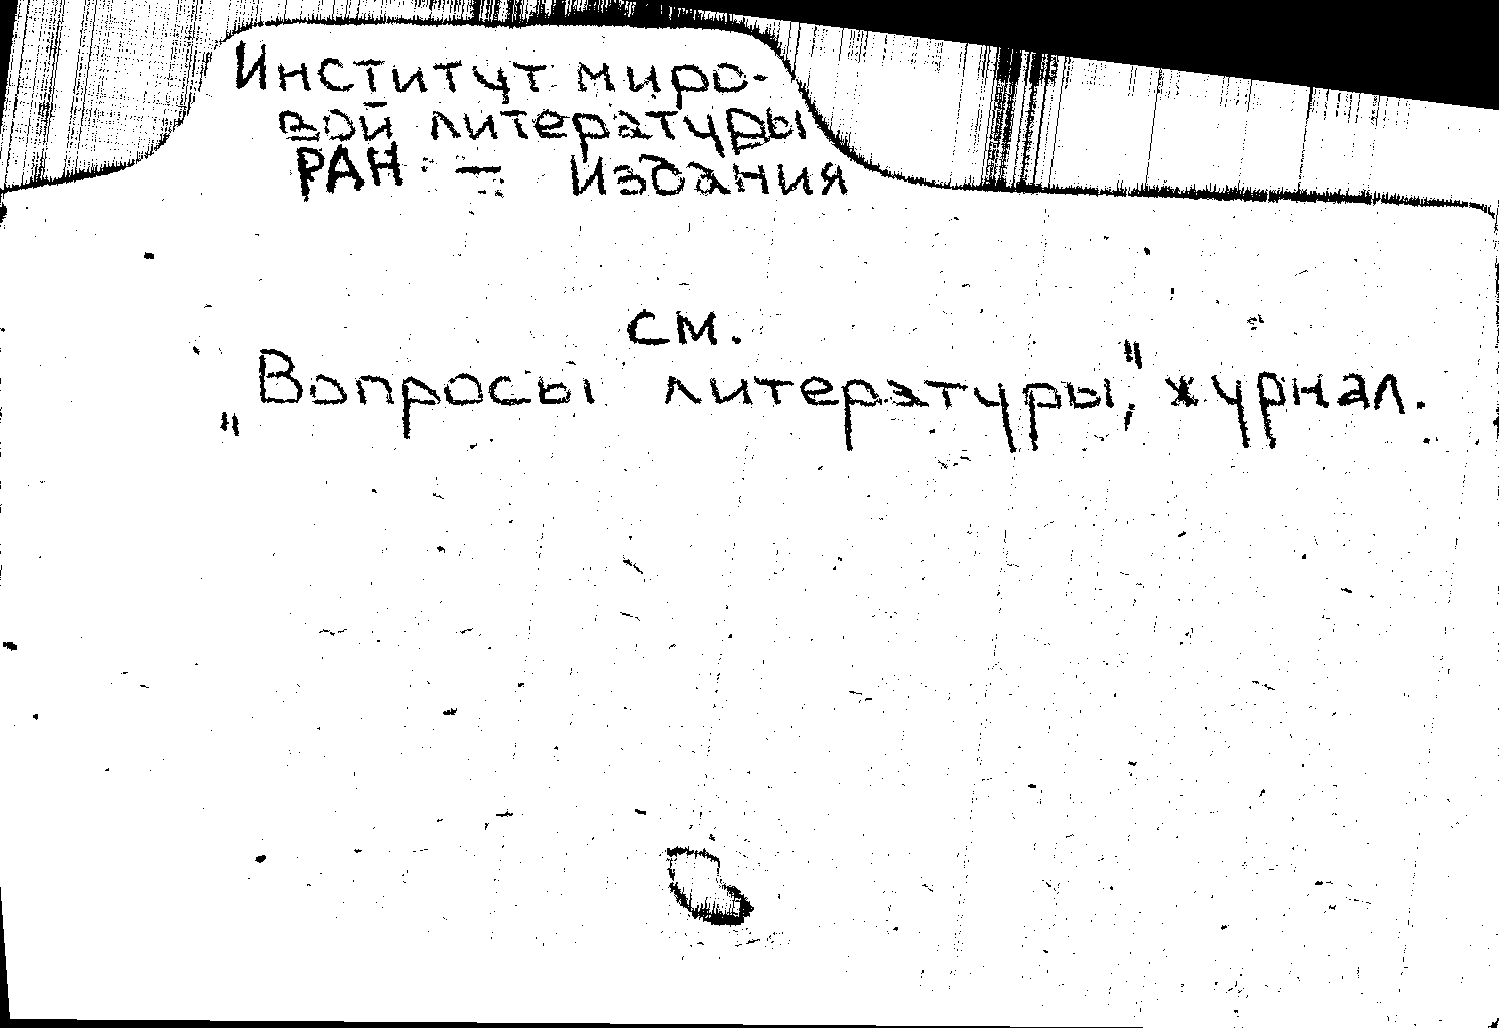 Институт миро-
вой литературы
РАН — Издания
см.
„Вопросы литературы", журнал.